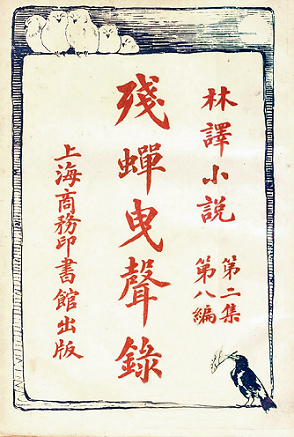 林譯小說
第二集
第八編
殘蟬曳聲錄
上海商務印書館出版